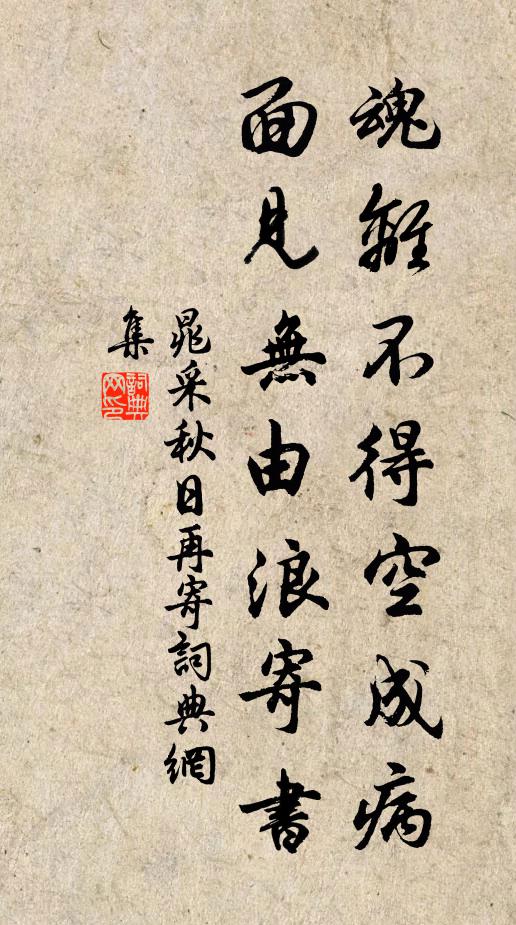 魂離不得空成病
面見無由浪寄書
晁采秋日再寄詞典網
集
詞典
网印